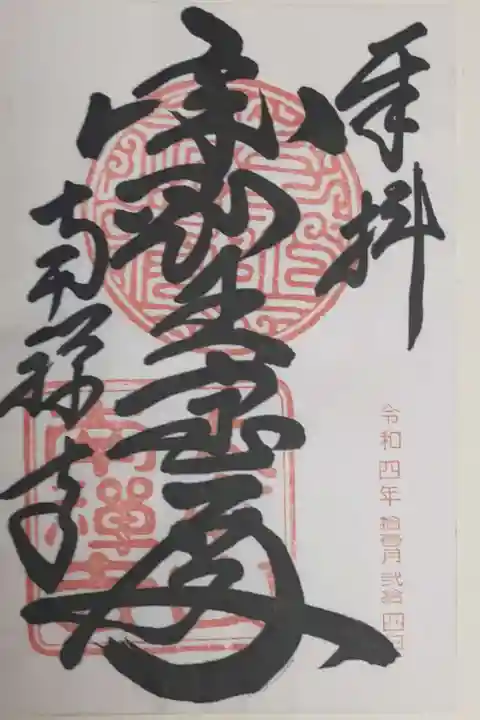 奉拝
令和四年拾壹月弐拾四日
金剛王宝殿
南禅寺